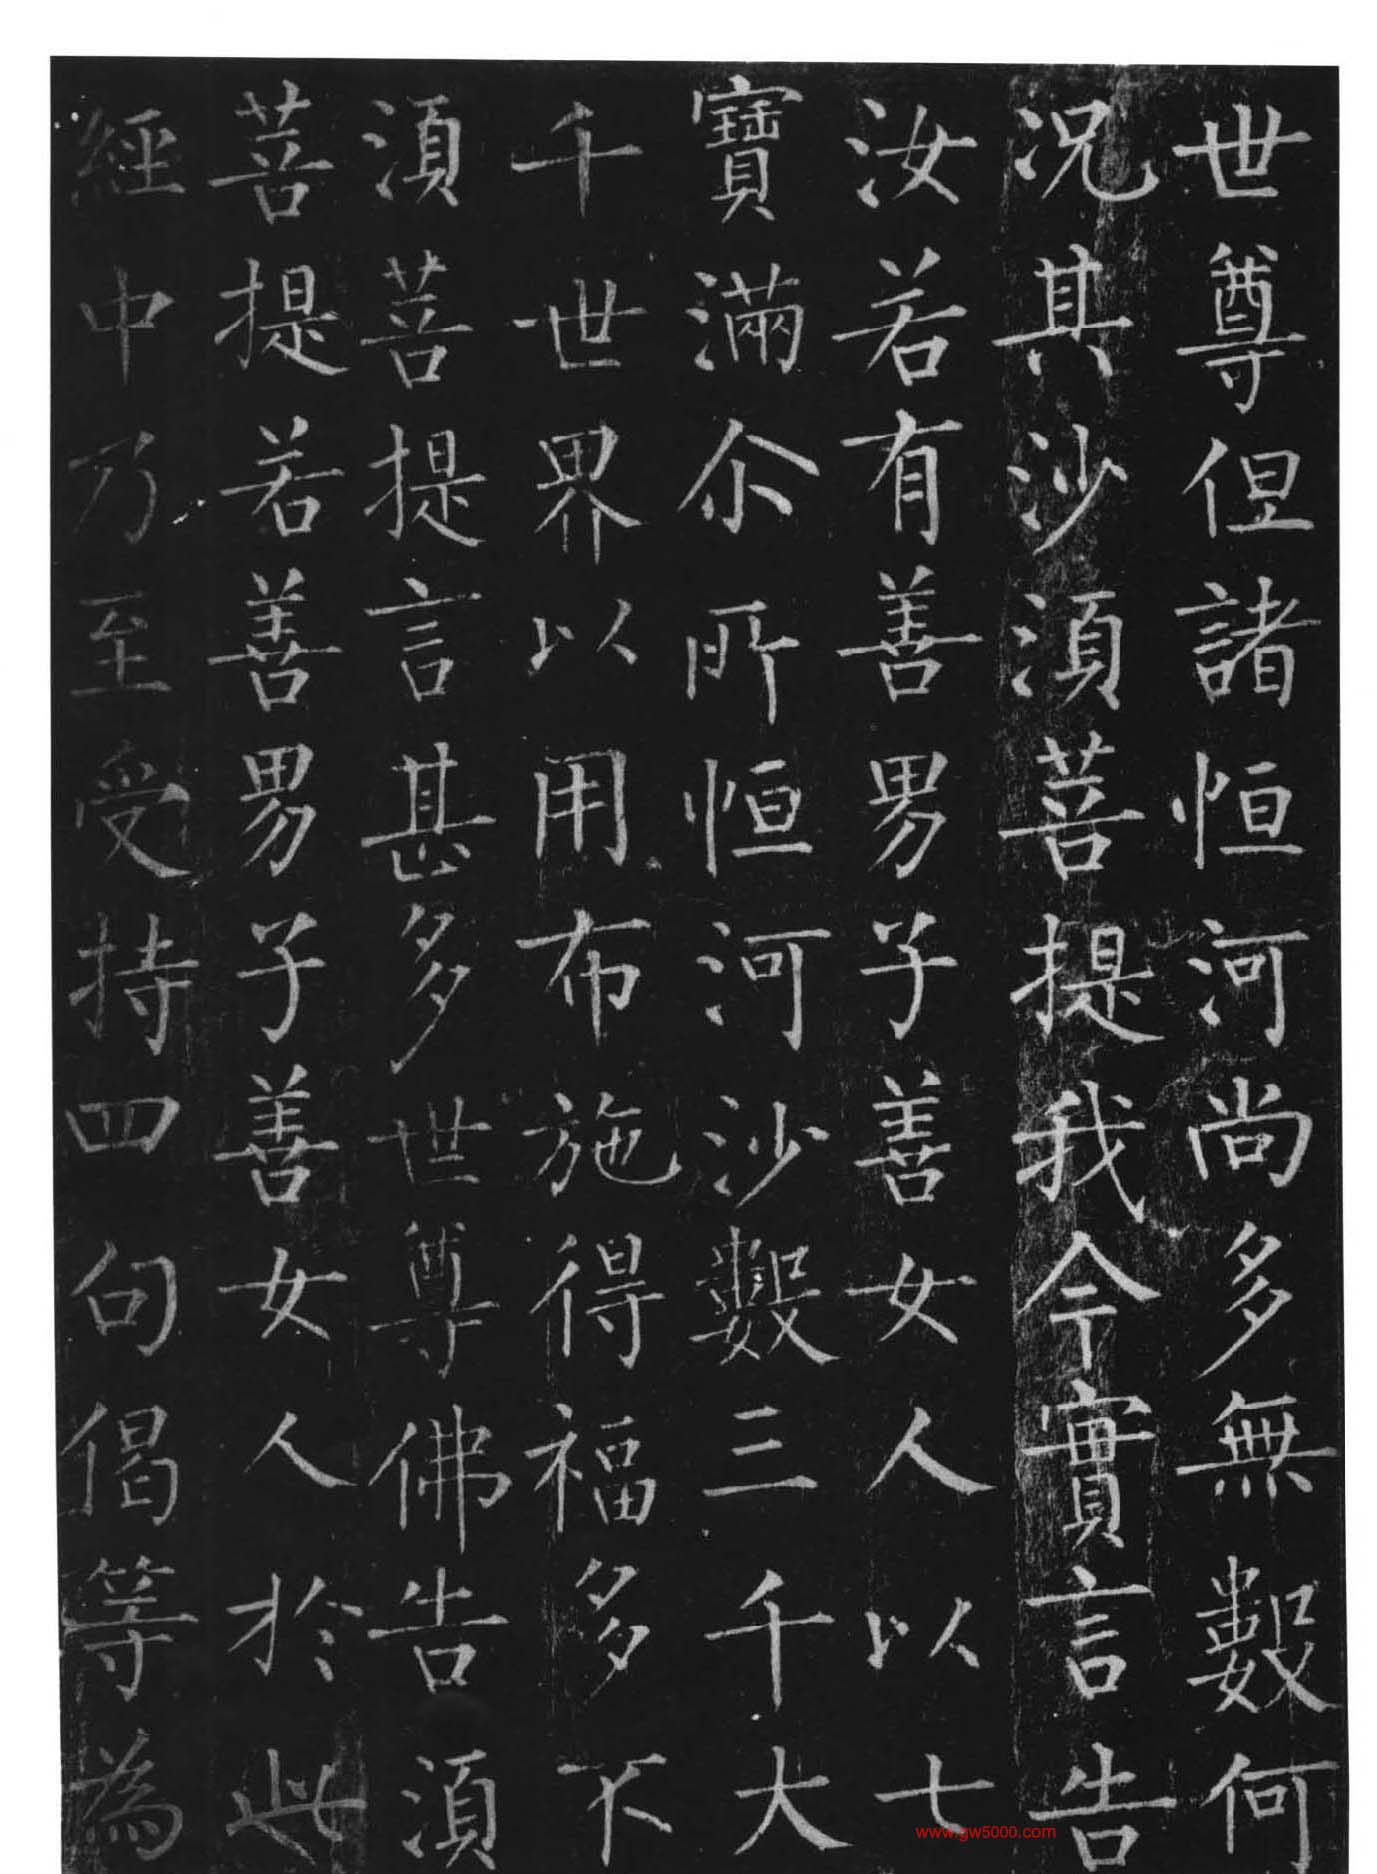 世尊但諸恒河尚多無數何
況其沙須菩提我今實言告
汝若有善男子善女人以七
寶滿尒所恒河沙數三千大
千世界以用布施得福多不
須菩提言甚多世尊佛告須
菩提若善男子善女人於此
經中乃至受持四句偈等為
www.gw5000.com